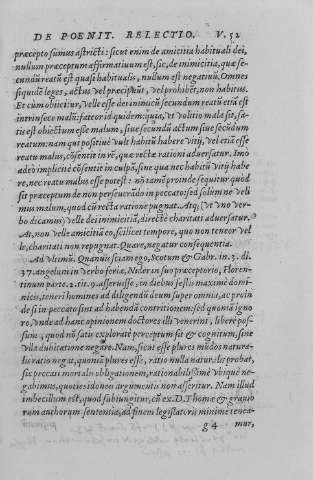 DE POENIT. RELECTIO. V. 52
præcepto sumus astricti: sicut enim de amicitia habituali dei,
nullum præceptum affirmatiuum est, sic, de inimicitia, quæ se-
cundũ reatũ est quasi habitualis, nullum est negatiuũ. Omnes
siquidẽ leges, actus vel præcipiũt, vel prohibẽt, non habitus.
Et cùm obijcitur, velle esse dei inimicũ secundum reatũ etiã est
intrinsece malũ: fateor id quidem: quia, vt volitio mala sit, sa-
tis est obiectum esse malum, siue secundũ actum siue secũdum
reatum: nam qui positiuè vult habitũ habere vitij, vel etiã esse
reatu malus, cõsentit in rẽ, quæ rectæ rationi aduersatur. Imò
adeò implicitè cõsentit in culpã, sine qua nec habitũ vitij habe
re, nec reatu malus esse potest: nõ tamẽ proinde sequitur quòd
sit præceptum de non perseuerãdo in peccato: sed solùm ne veli
mus malum, quod cũ recta ratione pugnat. Atq; (vt vno ver-
bo dicamus) velle dei inimicitiã, directè charitati aduersatur.
At, non velle amicitiã eo, scilicet tempore, quo non teneor vel
le, charitati non repugnat. Quare, negatur consequentia.
Ad vltimũ. Quamuis sciam ego, Scotum & Gabr. in .3. di.
37. angelum in verbo feriæ, Nider in suo præceptorio, Floren-
tinum parte .2. tit. 9. asseruisse, eo diebus festis maximè domi-
nicis, teneri homines ad diligendũ deum super omnia, ac proin
de si in peccato sint ad habendã contritionem: sed quoniã igno
ro, vnde ad hanc opinionem doctores illi venerint, liberè pos-
sum, quod nõ satis exploratè perceptum sit & cognitum, sine
vlla dubitatione negare. Nam, sicut esse plures mũdos natura-
lis ratio negat, quoniã plures esse, ratio nulla naturalis probat,
sic peccati mortalis obligationem, rationabilissimè vbiq; ne-
gabimus, quoties idoneo argumento non asseritur. Nam illud
imbecillum est, quod subiungitur, cũ ex .D. Thomæ & grauio
rum authorum sententia, ad finem legislatoris minimè teneа-
g 4 mur,